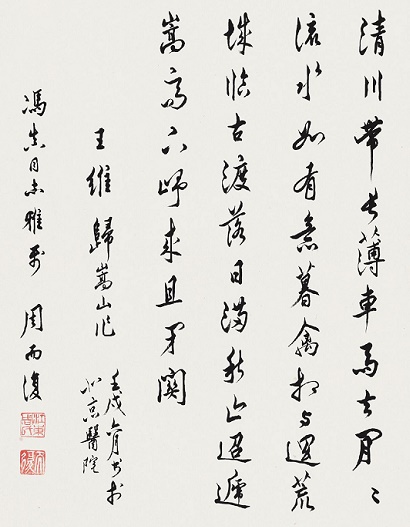 清川帶長薄車馬去閒〻
流水如有意暮禽相与還荒
城臨古渡落日滿秋山迢遞
嵩高下歸來且閉關
王維歸嵩山作
壬戌月书於
北京醫院
馮同志雅属 周而復